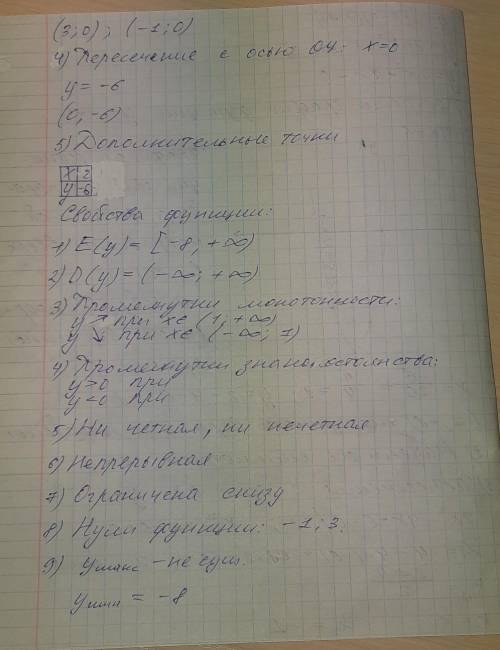 (3; 0); (-1; 0)
4) Пересечение с осью OY: x=0
y = -6
(0, -6)
5) Дополнительные точки
x 2
y -6
Свойства функции:
1) E(y) = [-8; +∞)
2) D(y) = (-∞; +∞)
3) Промежутки монотонности:
y ↗ при x∈ (1; +∞)
y ↘ при x∈ (-∞; 1)
4) Промежутки знакопостоянства:
y>0 при
y<0 при
5) Ни четная, ни нечетная
6) Непрерывная
7) Ограничена снизу
8) Нули функции: -1; 3.
9) yмакс - не сущ.
yмин = -8